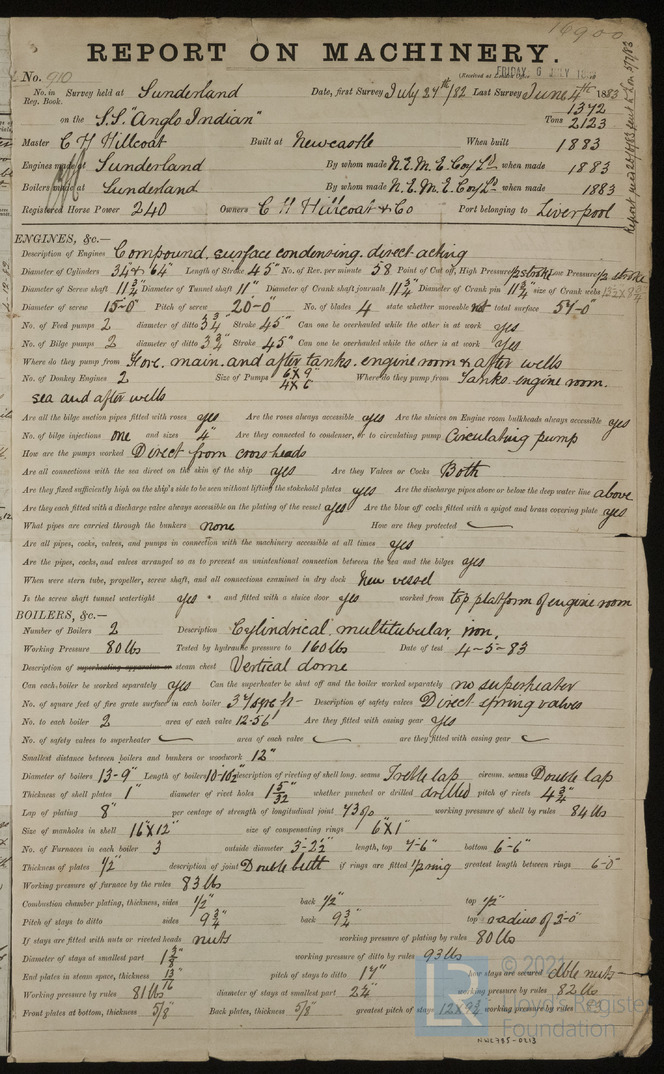 16900
REPORT ON MACHINERY.
No. 910 (Received at FRIDAY 6 JULY 1883
No. in Reg. Book. Survey held at Sunderland Date, first Survey July 27th/82 Last Survey June 4th 1883
on the S.S. "Anglo Indian" Tons 1372 2123
Master C H Hillcoat Built at Newcastle When built 1883
Engines made at Sunderland By whom made N.E.M.E. Coy Ld when made 1883
Boilers made at Sunderland By whom made N.E.M.E. Coy Ld when made 1883
Registered Horse Power 240 Owners C H Hillcoat & Co Port belonging to Liverpool
ENGINES, &c.—
Description of Engines Compound. surface condensing. direct acting
Diameter of Cylinders 34" & 64" Length of Stroke 45" No. of Rev. per minute 58 Point of Cut off, High Pressure 1/2 stroke Low Pressure 1/2 stroke
Diameter of Screw shaft 11 3/4" Diameter of Tunnel shaft 11" Diameter of Crank shaft journals 11 3/4" Diameter of Crank pin 11 3/4" size of Crank webs
Diameter of screw 15-0" Pitch of screw 20-0" No. of blades 4 state whether moveable not total surface 57-0"
No. of Feed pumps 2 diameter of ditto 3 3/4" Stroke 45" Can one be overhauled while the other is at work yes
No. of Bilge pumps 2 diameter of ditto 3 3/4" Stroke 45" Can one be overhauled while the other is at work yes
Where do they pump from Fore. main. and after tanks. engine room & after wells
No. of Donkey Engines 2 Size of Pumps 6 X 9" 4 X 6" Where do they pump from Tanks. engine room.
sea and after wells
Are all the bilge suction pipes fitted with roses yes Are the roses always accessible yes Are the sluices on Engine room bulkheads always accessible yes
No. of bilge injections one and sizes 4" Are they connected to condenser, or to circulating pump Circulating pump
How are the pumps worked Direct from cross heads
Are all connections with the sea direct on the skin of the ship yes Are they Valves or Cocks Both
Are they fixed sufficiently high on the ship's side to be seen without lifting the stokehold plates yes Are the discharge pipes above or below the deep water line above
Are they each fitted with a discharge valve always accessible on the plating of the vessel yes Are the blow off cocks fitted with a spigot and brass covering plate yes
What pipes are carried through the bunkers none How are they protected
Are all pipes, cocks, valves, and pumps in connection with the machinery accessible at all times yes
Are the pipes, cocks, and valves arranged so as to prevent an unintentional connection between the sea and the bilges yes
When were stern tube, propeller, screw shaft, and all connections examined in dry dock New vessel
Is the screw shaft tunnel watertight yes and fitted with a sluice door yes worked from top platform of engine room
BOILERS, &c.—
Number of Boilers 2 Description Cylindrical multitubular iron.
Working Pressure 80 lbs Tested by hydraulic pressure to 160 lbs Date of test 4-5-83
Description of superheating apparatus or steam chest Vertical dome
Can each boiler be worked separately yes Can the superheater be shut off and the boiler worked separately no superheater
No. of square feet of fire grate surface in each boiler Description of safety valves Direct spring valves
No. to each boiler 2 area of each valve 12-56" Are they fitted with easing gear yes
No. of safety valves to superheater area of each valve are they fitted with easing gear
Smallest distance between boilers and bunkers or woodwork 12"
Diameter of boilers 13-9" Length of boilers 10-10 1/2" description of riveting of shell long. seams Treble lap circum. seams Double lap
Thickness of shell plates 1" diameter of rivet holes 1 5/32" whether punched or drilled drilled pitch of rivets 4 3/4"
Lap of plating 8" per centage of strength of longitudinal joint 73% working pressure of shell by rules 84 lbs
Size of manholes in shell 16" X 12" size of compensating rings 6" X 1"
No. of Furnaces in each boiler 3 outside diameter 3-2 1/2" length, top 7-6" bottom 6-6"
Thickness of plates 1/2" description of joint Double butt if rings are fitted 1/2 ring greatest length between rings 6-0"
Working pressure of furnace by the rules 83 lbs
Combustion chamber plating, thickness, sides 1/2" back 1/2" top 1/2"
Pitch of stays to ditto sides 9 3/4" back 9 3/4" top radius of 2-0"
If stays are fitted with nuts or riveted heads nuts working pressure of plating by rules 80 lbs
Diameter of stays at smallest part 1 3/8" working pressure of ditto by rules 93 lbs
End plates in steam space, thickness 13/16" pitch of stays to ditto 17" how stays are secured dble nuts
Working pressure by rules 81 lbs diameter of stays at smallest part 2 1/4" working pressure by rules 82 lbs
Front plates at bottom, thickness 5/8" Back plates, thickness 5/8" greatest pitch of stays 12 X 9 3/4 working pressure by rules
© 2021
Lloyd's Register
Foundation
NWC785-0213